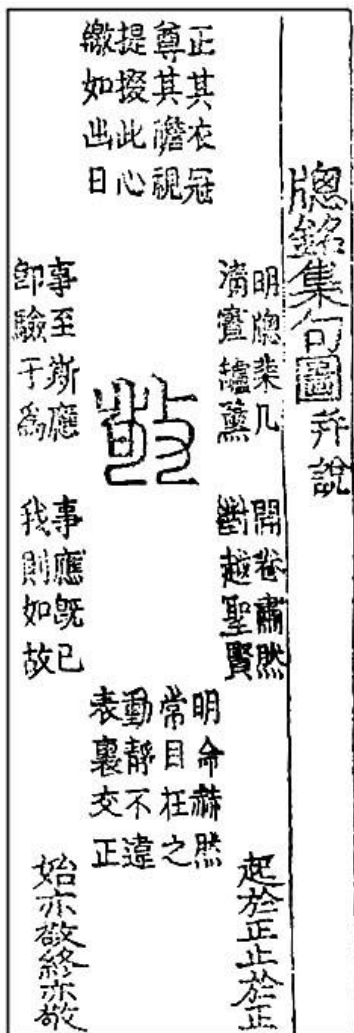 牕銘集句圖 并說
正其衣冠
尊其瞻視
提掇此心
繳如出日
明牕棐几
清晝罏薰
開卷肅然
對越聖賢
敬
事至斯應
卽驗于爲
事應旣已
我則如故
明命赫然
常目在之
動靜不違
表裏交正
起於正止於正
始亦敬終亦敬